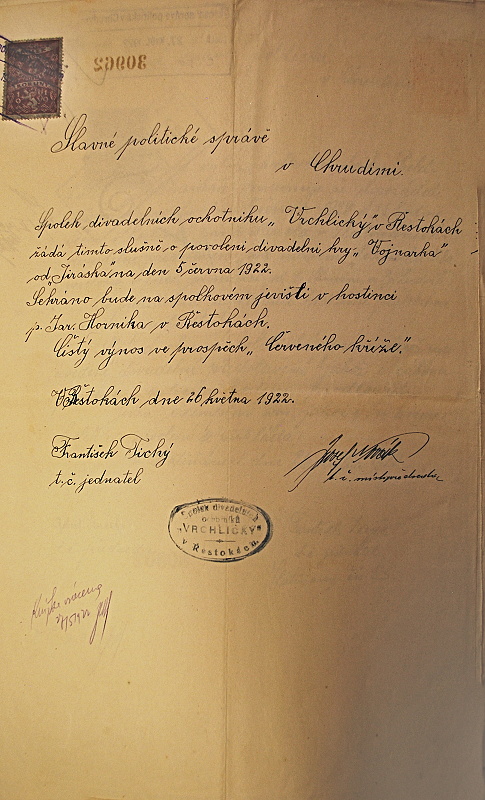 30962
Slavné politické správě
v Chrudimi.
Spolek divadelních ochotniku „Vrchlický" v Řestokách
žádá timto slušně o povoleni divadelni hry „Vojnarka"
od „Jiráska" na den 5 června 1922.
Sehráno bude na spolkovém jevišti v hostinci
p. Jar. Hornika v Řestokách.
Čistý výnos ve prospěch „Červeného kříže."
V Řestokách dne 26 května 1922.
František Tichý
t. č. jednatel
Josef
t. č. místopředseda
Spolek divadelních
ochotníků
„VRCHLICKÝ"
v Řestokách.